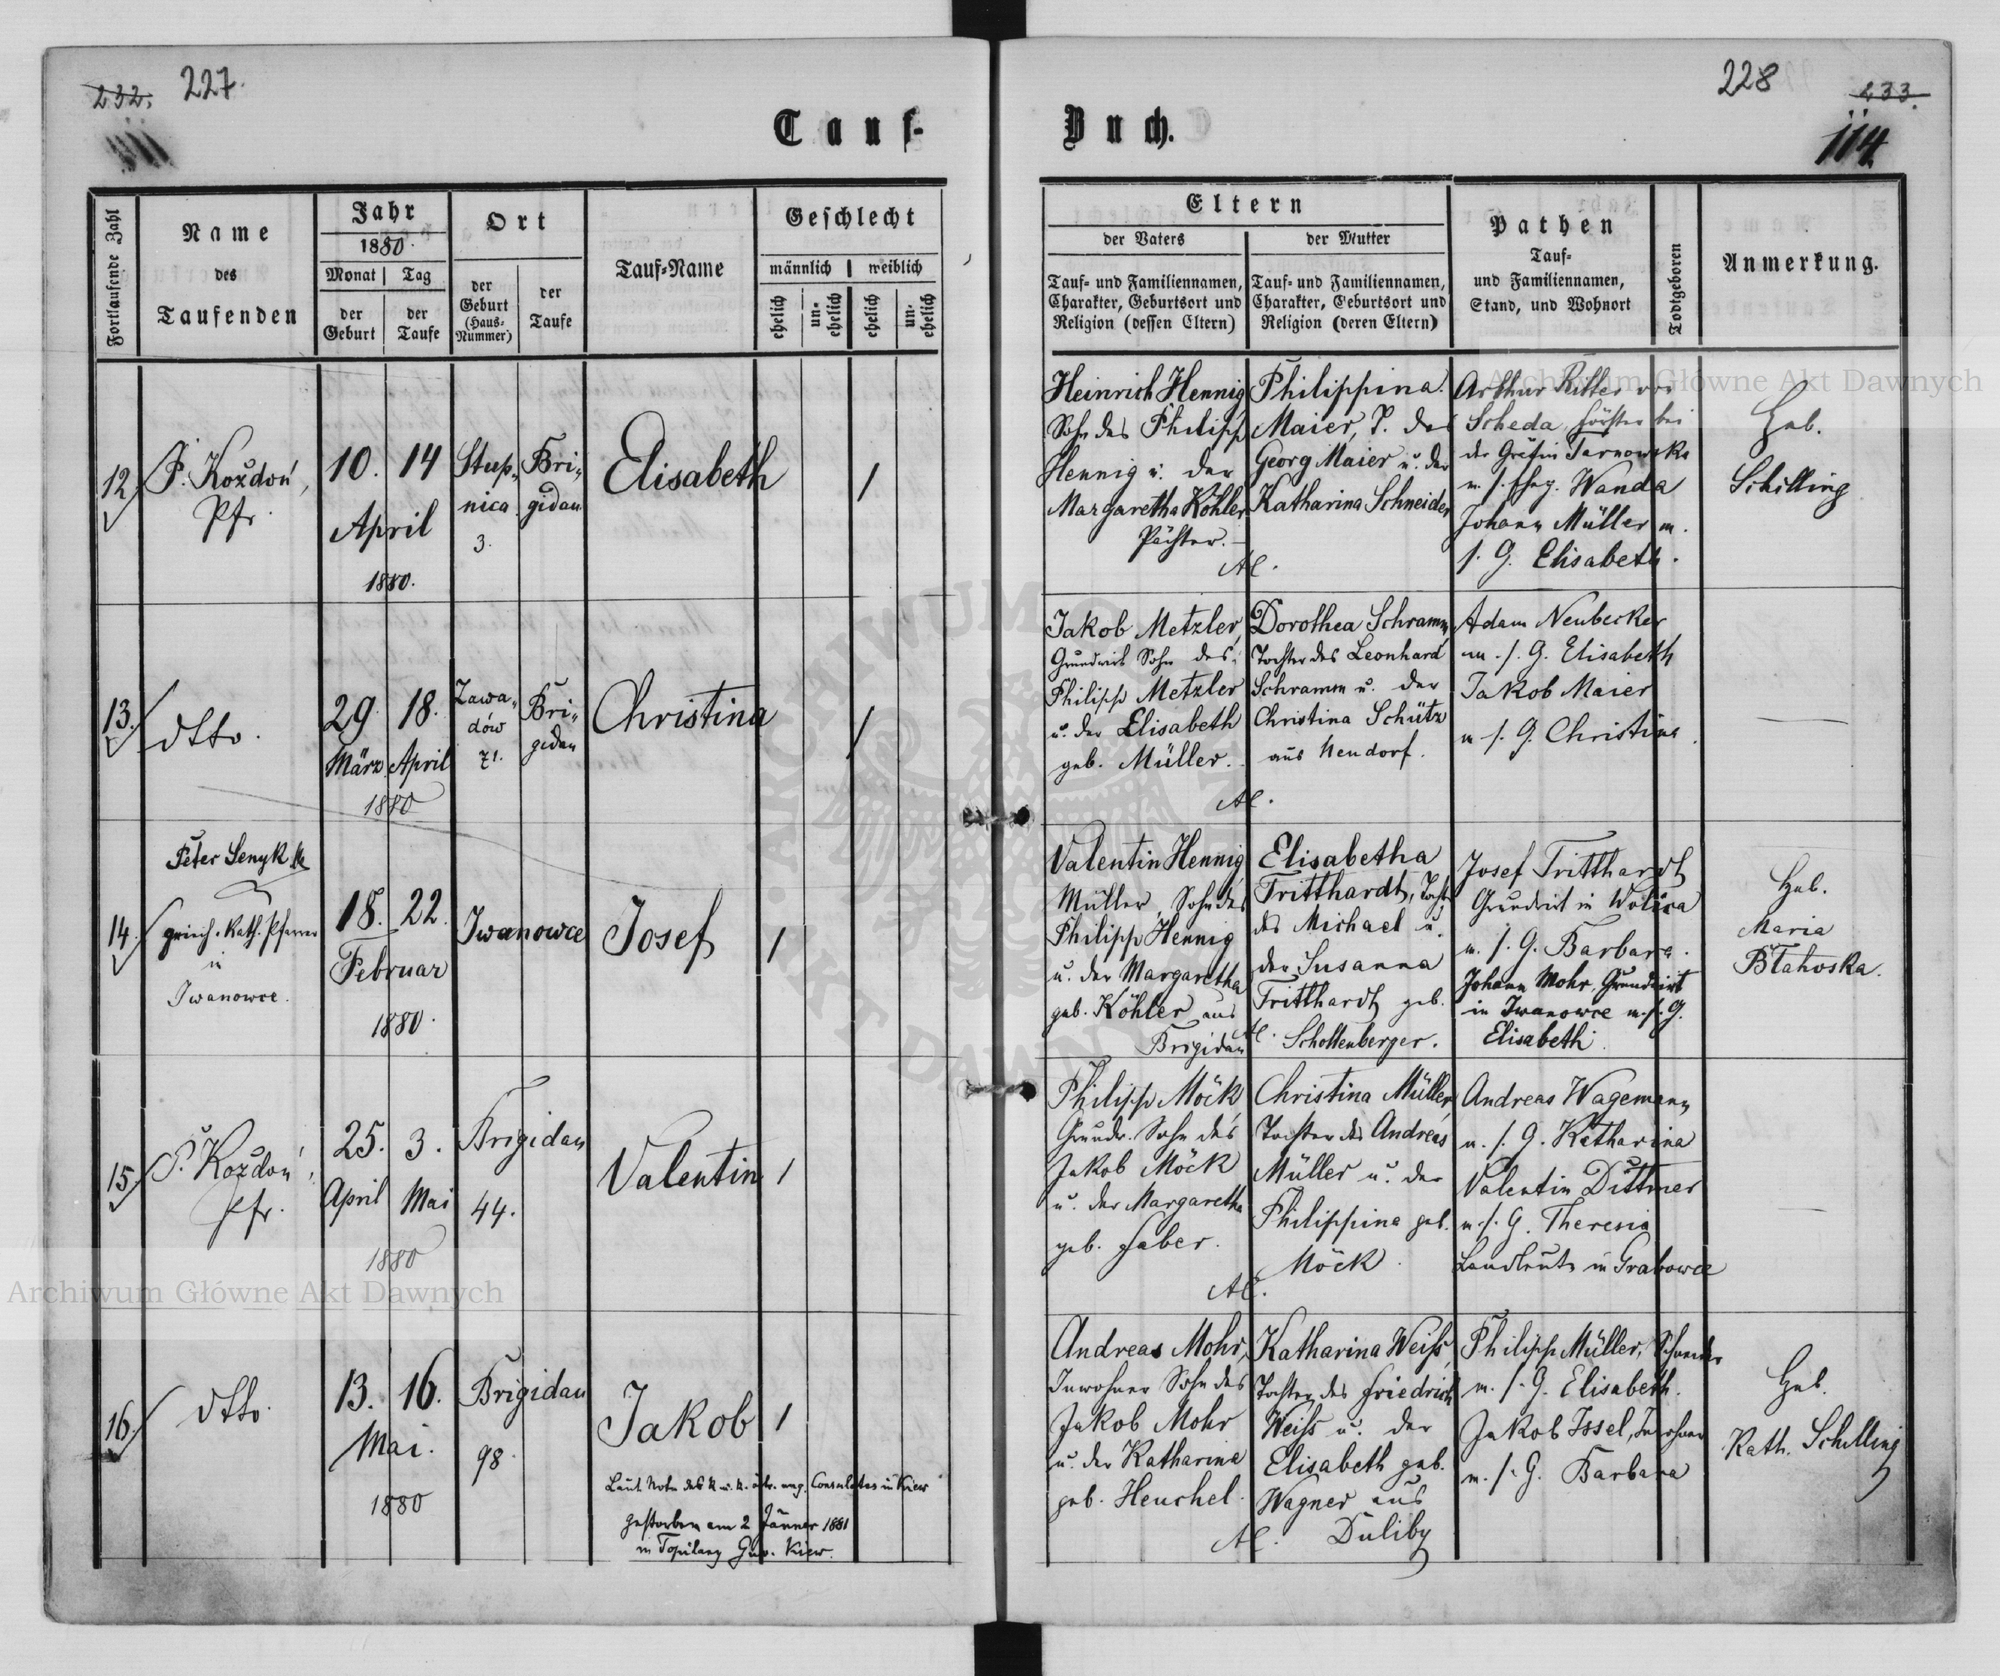 232. 227.
228 233.
114.
Tauf-
Buch.
Fortlaufende Zahl
Name
des
Taufenden
Jahr
1880.
Monat
Tag
der
Geburt
der
Taufe
Ort
der
Geburt
(Haus-
Nummer)
der
Taufe
Tauf-Name
Geschlecht
männlich
weiblich
ehelich
un-
ehelich
ehelich
un-
ehelich
Eltern
der Vaters
der Mutter
Tauf- und Familiennamen,
Charakter, Geburtsort und
Religion (dessen Eltern)
Tauf- und Familiennamen,
Charakter, Geburtsort und
Religion (deren Eltern)
Pathen
Tauf-
und Familiennamen,
Stand, und Wohnort
Todtgeboren
Anmerkung.
12
P. Koždoń,
Pfr.
10. 14
April
1880.
Stup-
nica
3.
Bri-
gidau
Elisabeth
/
Heinrich Hennig
Sohn des Philipp
Hennig u. der
Margaretha Köhler
Pächter.
AC.
Philippina
Maier, T. des
Georg Maier u. der
Katharina Schneider
Arthur Ritter von
Scheda, Förster bei
der Gräfin Tarnowska
m. s. Eheg. Wanda
Johann Müller m.
s. G. Elisabeth.
Heb.
Schilling
13.
dtto.
29. 18.
März April
1880
Zawa-
dów
71.
Bri-
gidau
Christina
/
Jakob Metzler,
Grundwirt Sohn des
Philipp Metzler
u. der Elisabeth
geb. Müller.
AC.
Dorothea Schramm,
Tochter des Leonhard
Schramm u. der
Christina Schütz
aus Neudorf.
Adam Neubecker
m. s. G. Elisabeth
Jakob Maier
m. s. G. Christina.
14.
Peter Senyk
griech. kath. Pfarrer
in
Iwanowce.
18. 22.
Februar
1880.
Iwanowce
Josef
/
Valentin Hennig
Müller, Sohn des
Philipp Hennig
u. der Margaretha
geb. Köhler aus
Brigidau
AC.
Elisabetha
Tritthardt, Tocht.
des Michael u.
der Susanna
Tritthardt geb.
Schottenberger.
Josef Tritthardt
Grundwirt in Wolica
m. s. G. Barbara.
Johann Mohr, Grundwirt
in Iwanowce m. s. G.
Elisabeth.
Heb.
Maria
Błahoska.
15.
P. Koždoń,
Pfr.
25. 3.
April Mai
1880
Brigidau
44.
Valentin
/
Philipp Möck
Grundw. Sohn des
Jakob Möck
u. der Margaretha
geb. Faber.
AC.
Christina Müller,
Tochter des Andreas
Müller u. der
Philippina geb.
Möck.
Andreas Wagemann
m. s. G. Katharina
Valentin Dittmer
m. s. G. Theresia
Landleute in Grabowce
16.
dtto.
13. 16.
Mai.
1880
Brigidau
98.
Jakob
/
Laut Note des k. u. k. östr. ung. Consulates in Kiew
gestorben am 2 Jänner 1881
in Gouv. Kiew.
Andreas Mohr,
Inwohner Sohn des
Jakob Mohr
u. der Katharina
geb. Heuchel.
AC.
Katharina Weiß,
Tochter des Friedrich
Weiß u. der
Elisabeth geb.
Wagner aus
Duliby
Philipp Müller, Schneider
m. s. G. Elisabeth.
Jakob Issel, Inwohner
m. s. G. Barbara
Heb.
Kath. Schilling
Archiwum Główne Akt Dawnych
Archiwum Główne Akt Dawnych